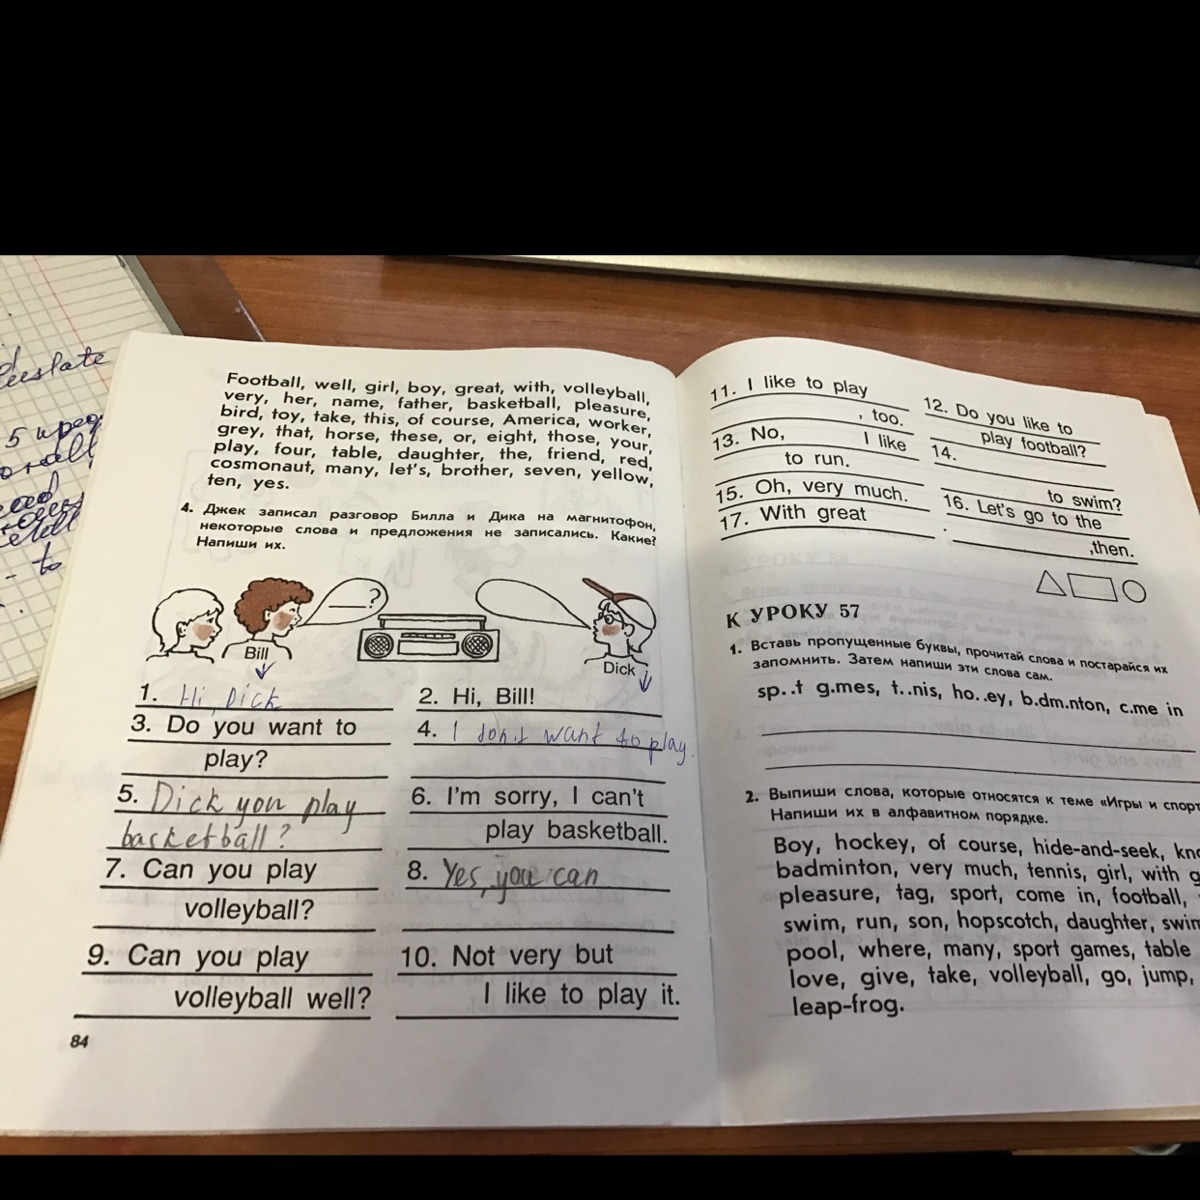 Football, well, girl, boy, great, with, volleyball,
very, her, name, father, basketball, pleasure,
bird, toy, take, this, of course, America, worker,
grey, that, horse, these, or, eight, those, your,
play, four, table, daughter, the, friend, red,
cosmonaut, many, let's, brother, seven, yellow,
ten, yes.
4. Джек записал разговор Билла и Дика на магнитофон,
некоторые слова и предложения не записались. Какие?
Напиши их.
?
Bill
Dick
1. Hi, Dick
2. Hi, Bill!
3. Do you want to
play?
4. I don't want to play.
5. Dick you play
basketball?
6. I'm sorry, I can't
play basketball.
7. Can you play
volleyball?
8. Yes, you can
9. Can you play
volleyball well?
10. Not very but
I like to play it.
84
11. I like to play
, too.
12. Do you like to
play football?
13. No, I like
to run.
14.
to swim?
15. Oh, very much.
16. Let's go to the
.
17. With great
,then.
К УРОКУ 57
1. Вставь пропущенные буквы, прочитай слова и постарайся их
запомнить. Затем напиши эти слова сам.
sp..t g.mes, t..nis, ho..ey, b.dm.nton, c.me in
2. Выпиши слова, которые относятся к теме «Игры и спорт
Напиши их в алфавитном порядке.
Boy, hockey, of course, hide-and-seek, kno
badminton, very much, tennis, girl, with g
pleasure, tag, sport, come in, football,
swim, run, son, hopscotch, daughter, swim
pool, where, many, sport games, table
love, give, take, volleyball, go, jump,
leap-frog.